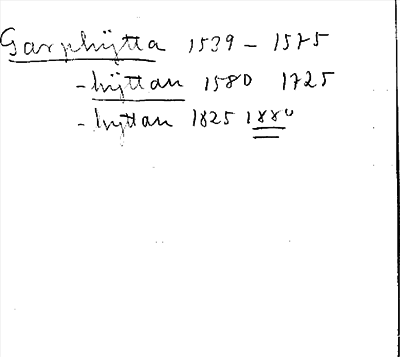 Garphytta 1539 - 1575
- hyttan 1580 1725
- hyttan 1825 1880